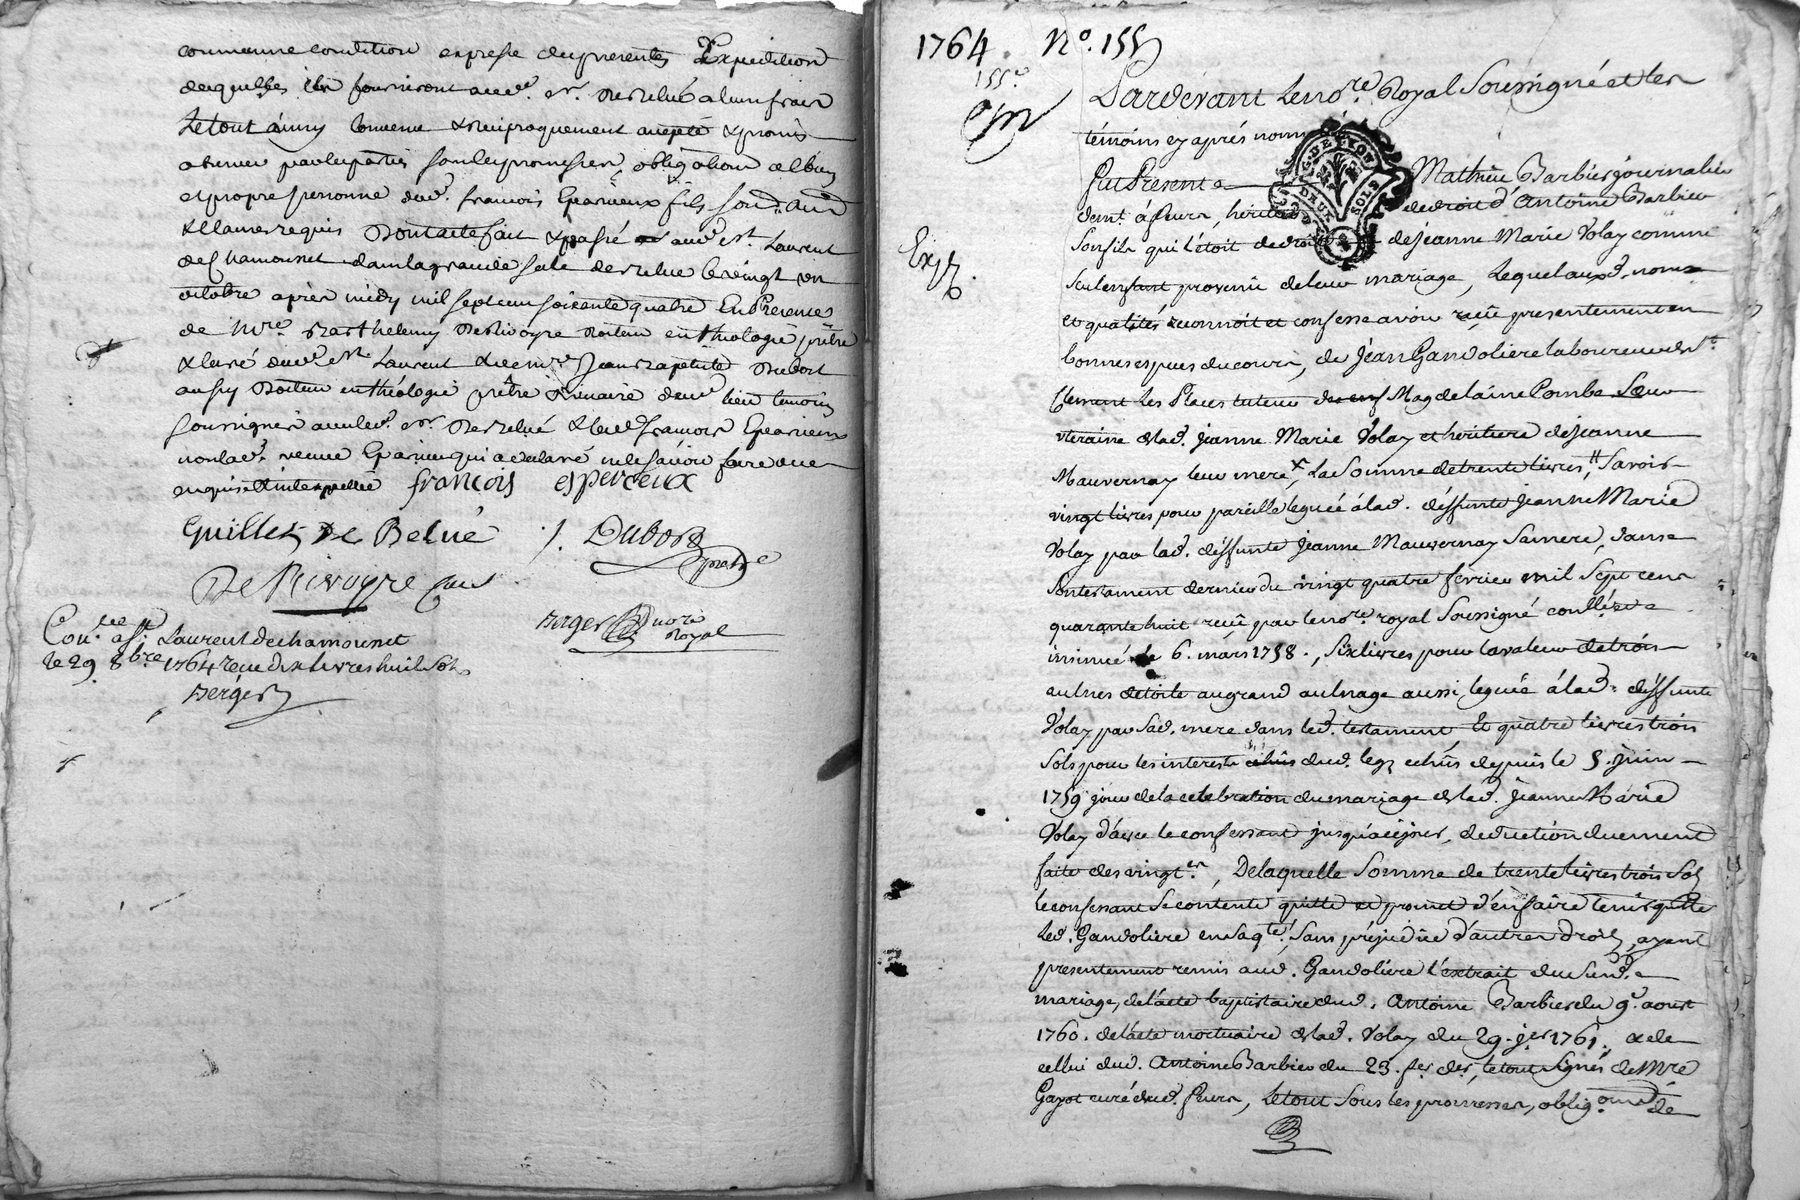 comme une condition expresse des presentes Expedition
desquelles ils fourniront aud. sr. De Relué a leurs frais
Le tout ainsy convenu & reciproquement accepté & promis
observer par les parties sous les promesses, obligations de biens
et propre personne dud. françois Eparcieux fils
& clauses requis Dont acte fait & passé aud. st. Laurent
de Chamousset dans la grande sale de Relue le vingt un
octobre après midy mil sept cens soixante quatre En Presence
de Mre. Barthelemy De Rivoyre Docteur en théologie prêtre
& curé dud. st. Laurent & de mre Jean Baptiste Dubost
aussy Docteur en théologie prêtre & vicaire dud. lieu temoins
soussignés avec led. sr. De Relué & led. françois Eparcieux
non lad. veuve Eparcieux qui a declaré ne le sçavoir faire de ce
enquise & interpellée françois esperceux
Guillet De Relué J. Dubost
De Rivoyre curé
Berger no.re Royal
Con.lee a St. Laurent de chamousset
le 29. 8bre 1764 recu dix livres huit sols
Berger
1764 No. 155
155e
Pardevant le no.re Royal Soussigné et les
témoins cy aprés nommés
G. DE LYON
DEUX SOLS
Fut Présent Mathieu Barbier journalier
dem.t á feurs, héritier de droit d'Antoine Barbier
Son fils qui l'étoit de droit de Jeanne Marie Volay comme
seul enfant provenu de leur mariage, Lequel auxd. noms
et qualités reconnoit et confesse avoir reçû presentement en
bonnes especes du cours, de Jean Gandoliere laboureur de St.
Clement Les Places tuteur de Magdelaine Pombe Sœur
uteraine de lad. Jeanne Marie Volay et héritiere de Jeanne
Mauvernay leur mere, La Somme de trente livres, Savoir
vingt livres pour pareille leguée á lad. déffunte Jeanne Marie
Volay par lad. déffunte Jeanne Mauvernay Sa mere, dans
son testament dernier du vingt quatre fevrier mil Sept cens
quarante huit reçû par le no.re royal Soussigné conllé &
insinué le 6. mars 1758., Six livres pour la valeur de trois
aulnes de toile au grand aulnage aussi leguée á lad. déffunte
Volay par sad. mere dans led. testament Et quatre livres trois
Sols pour les interests dud. legs echûs depuis le 5. juin
1759 jour de la celebration du mariage de lad. Jeanne Marie
Volay d'avec le confessant jusqu'a ce jour, deduction duement
faite des vingt.es, De laquelle Somme de trente livres trois Sols
le confessant Se contente quitte et promet d'en faire tenir quitte
Led. Gandoliere en Saq.té, Sans préjudice d'autres droits, ayant
presentement remis aud. Gandoliere l'extrait du Susd.
mariage, de l'acte baptistaire dud. Antoine Barbier du 9e. aoust
1760. de l'acte mortuaire de lad. Volay du 29. jer 1761. & de
cellui dud. Antoine Barbier du 23. fer. der, le tout Signés de Mre
Gayot curé dud. feurs, Le tout Sous les promesses, oblig.ons de